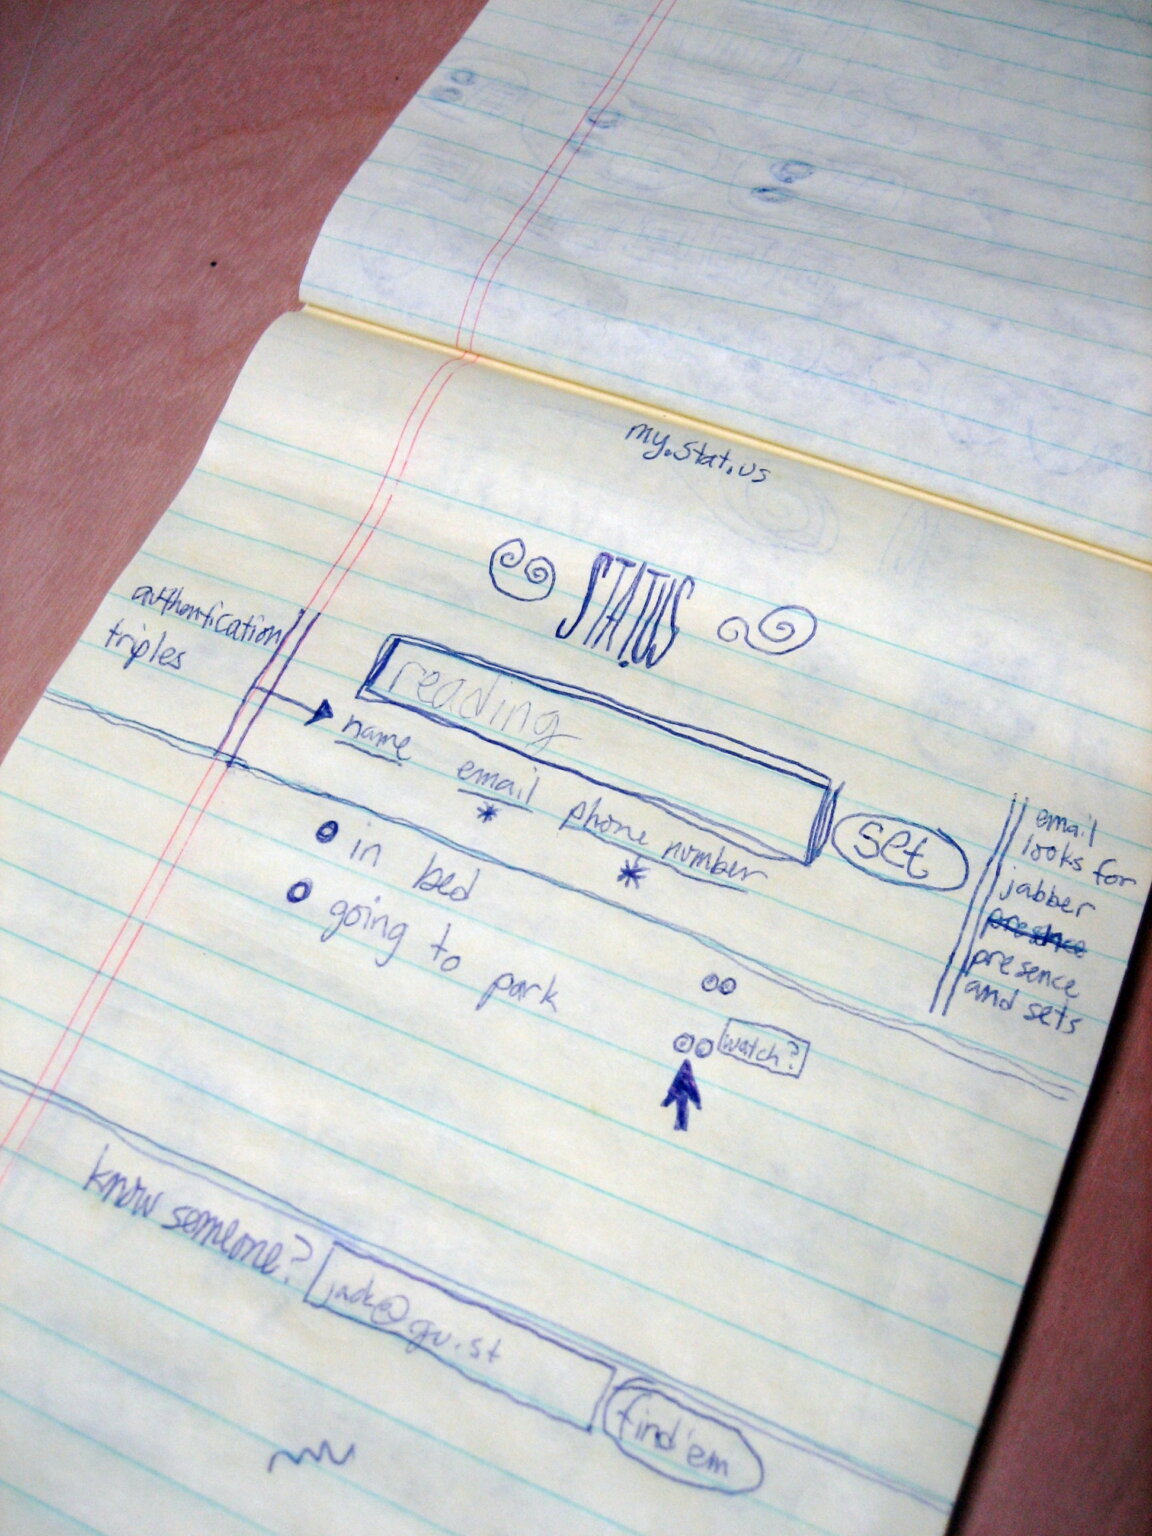 my.stat.us
STAT.US
authentication
triples
reading
name email phone number
* *
set
email
looks for
jabber
presence
presence
and sets
in bed
going to park
watch?
know someone? jack@gu.st
find'em